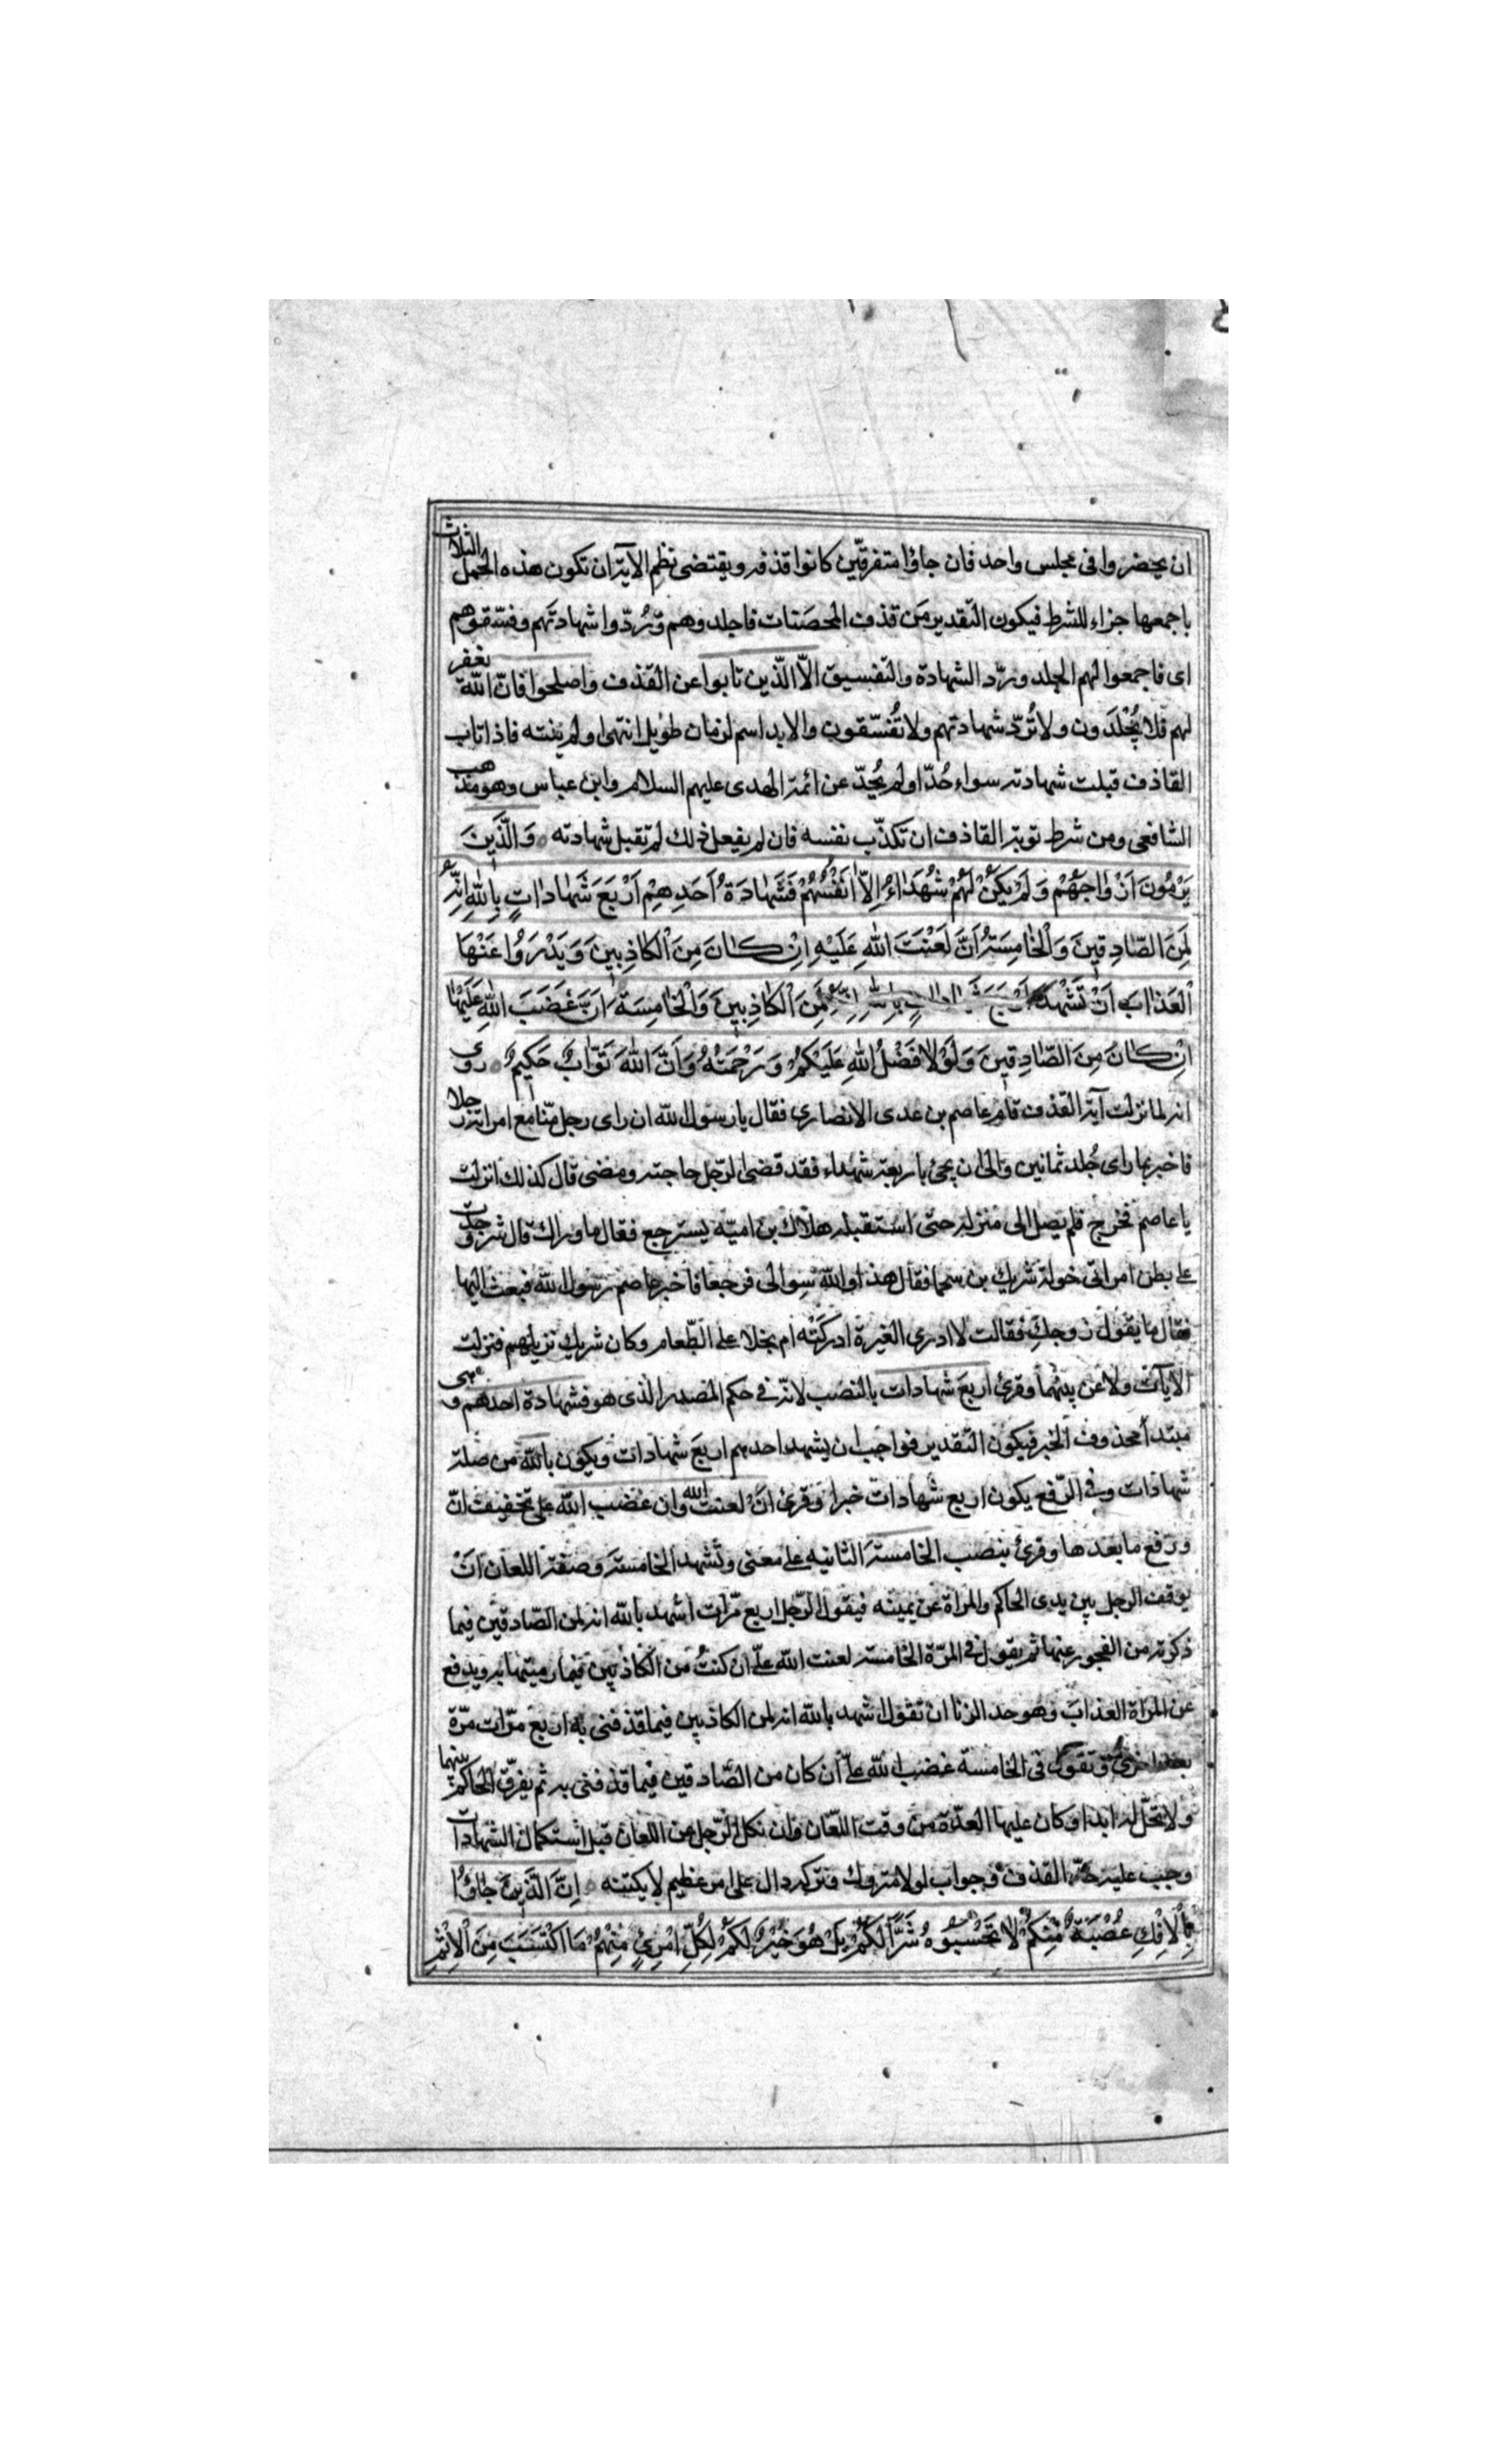 ان يحضروا فى مجلس واحد فان جاؤا متفرقين كانوا قذفه ويقتضى نظم الآية ان تكون هذه الجمل الثلاث
باجمعها جزاء للشرط فيكون التقدير من قذف المحصنات فاجلدوهم وردّوا شهادتهم وفسّقوهم
اى فاجمعوا لهم الجلد وردّ الشهادة والتفسيق الّا الّذين تابوا عن القذف واصلحوا فانّ اللّه يغفر
لهم فلا يُجْلَدون ولا تُردّ شهادتهم ولا تُفسّقون والابد اسم لزمان طويل انتهى اولم ينته فاذا تاب
القاذف قبلت شهادته سواء حُدّ اولم يُحدّ عن ائمة الهدى عليهم السلام وابن عباس وهو مذهب
الشافعى ومن شرط توبة القاذف ان تكذّب نفسه فان لم يفعل ذلك لم تقبل شهادته وَالَّذِينَ
يَرْمُونَ اَزْوٰاجَهُمْ وَلَمْ يَكُنْ لَهُمْ شُهَدٰاءُ اِلّٰا اَنْفُسُهُمْ فَشَهٰادَةُ اَحَدِهِمْ اَرْبَعَ شَهٰادٰاتٍ بِاللّٰهِ اِنَّهُ
لَمِنَ الصّٰادِقِينَ وَالْخٰامِسَةُ اَنَّ لَعْنَتَ اللّٰهِ عَلَيْهِ اِنْ كٰانَ مِنَ الْكٰاذِبِينَ وَيَدْرَؤُا عَنْهَا
الْعَذٰابَ اَنْ تَشْهَدَ اَرْبَعَ شَهٰادٰاتٍ بِاللّٰهِ اِنَّهُ لَمِنَ الْكٰاذِبِينَ وَالْخٰامِسَةَ اَنَّ غَضَبَ اللّٰهِ عَلَيْهٰا
اِنْ كٰانَ مِنَ الصّٰادِقِينَ وَلَوْلٰا فَضْلُ اللّٰهِ عَلَيْكُمْ وَرَحْمَتُهُ وَاَنَّ اللّٰهَ تَوّٰابٌ حَكِيمٌ روى
انه لما نزلت آية القذف قام عاصم بن عدى الانصارى فقال يا رسول اللّه ان راى رجل منّا مع امراته رجلا
فاخبر بما راى جُلد ثمانين والى ان يجئ باربعة شهداء فقد قضى الرّجل حاجته ومضى قال كذلك انزلت
يا عاصم فخرج فلم يصل الى منزله حتى استقبله هلال بن اميّه يسترجع فقال ما وراك قال شر وجدت
على بطن امراتى خولة شريك بن سحما فقال هذا واللّه سوالى فرجعا فاخبر عاصم رسول اللّه فبعث اليها
فقال ما يقول زوجكِ فقالت لا ادرى الغيرة ادركَتْه ام بخلا على الطّعام وكان شريك نزيلهم فنزلت
الآيات ولا عن بينهما وقرئ اربعَ شهادات بالنصب لانّه فى حكم المصدر الذى هو فشهادة احدهم وهى
مبتدأ محذوف الخبر فيكون التقدير فواجب ان يشهد احدهم اربعَ شهادات ويكون باللّه من صلة
شهادات وفى الرّفع يكون اربع شهادات خبرا وقرئ انْ لعنت اللّه وان غضب اللّه على تخفيف انّ
ورفع ما بعدها وقرئ بنصب الخامسةَ الثانيه على معنى وتَشهد الخامسةَ وصفة اللعان انْ
يوقف الرجل بين يدى الحاكم والمراة عن يمينه فيقول الرّجل اربع مرّات اشهد باللّه انه لمن الصّادقين فيما
ذكرته من الفجور عنها ثم يقول فى المرّة الخامسة لعنت اللّه علىّ ان كنتُ من الكاذبين فيما رميتها به ويدفع
عن المراة العذابَ وهو حد الزنا ان تقول اشهد باللّه انه لمن الكاذبين فيما قذفنى به اربع مرّات مرّة
بعد اخرى وتقول فى الخامسة غضب اللّه علىّ ان كان من الصّادقين فيما قذفنى به ثم يفرّق الحاكم بينهما
ولا تحلّ له ابدا وكان عليها العدّة من وقت اللّعان وان نكل الرّجل عن اللعان قبل استكمال الشهادات
وجب عليه حدّ القذف وجواب لولا متروك وتركه دال على امر عظيم لا يكتنه اِنَّ الَّذِينَ جٰاؤُا
بِالْاِفْكِ عُصْبَةٌ مِنْكُمْ لٰا تَحْسَبُوهُ شَرًّا لَكُمْ بَلْ هُوَ خَيْرٌ لَكُمْ لِكُلِّ امْرِئٍ مِنْهُمْ مَا اكْتَسَبَ مِنَ الْاِثْمِ